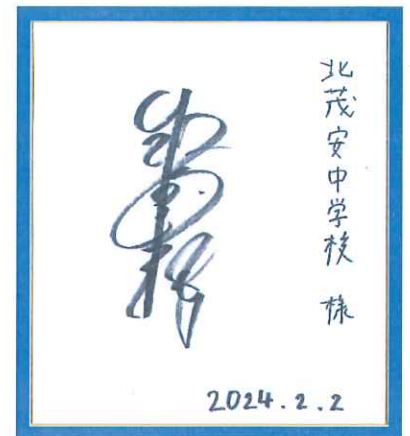 北茂安中学校 様
2024.2.2